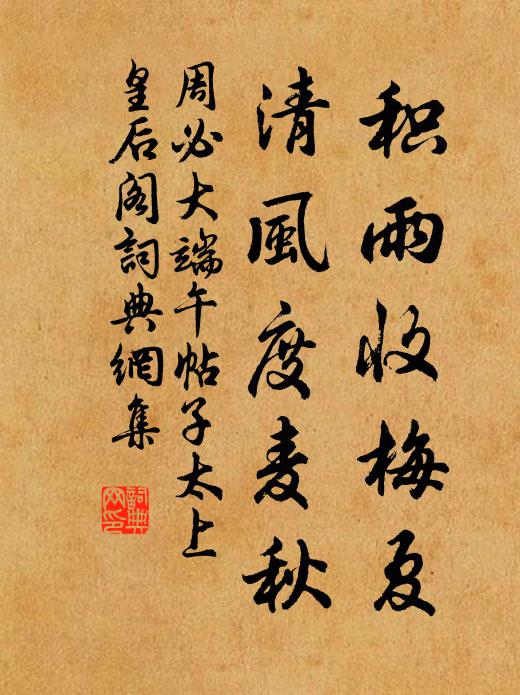 积雨收梅夏
清風度麦秋
周必大端午帖子太上
皇后阁詞典網集
詞典网印